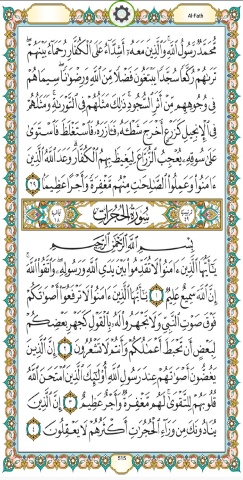 Al-Fath
مُّحَمَّدٌ رَّسُولُ ٱللَّهِ وَٱلَّذِينَ مَعَهُۥٓ أَشِدَّآءُ عَلَى ٱلْكُفَّارِ رُحَمَآءُ بَيْنَهُمْ
تَرَىٰهُمْ رُكَّعًا سُجَّدًا يَبْتَغُونَ فَضْلًا مِّنَ ٱللَّهِ وَرِضْوَٰنًا سِيمَاهُمْ
فِى وُجُوهِهِم مِّنْ أَثَرِ ٱلسُّجُودِ ذَٰلِكَ مَثَلُهُمْ فِى ٱلتَّوْرَىٰةِ وَمَثَلُهُمْ
فِى ٱلْإِنجِيلِ كَزَرْعٍ أَخْرَجَ شَطْـَٔهُۥ فَـَٔازَرَهُۥ فَٱسْتَغْلَظَ فَٱسْتَوَىٰ
عَلَىٰ سُوقِهِۦ يُعْجِبُ ٱلزُّرَّاعَ لِيَغِيظَ بِهِمُ ٱلْكُفَّارَ وَعَدَ ٱللَّهُ ٱلَّذِينَ
ءَامَنُوا۟ وَعَمِلُوا۟ ٱلصَّٰلِحَٰتِ مِنْهُم مَّغْفِرَةً وَأَجْرًا عَظِيمًۢا ٢٩
سُورَةُ الحُجُرَاتِ
بِسْمِ ٱللَّهِ ٱلرَّحْمَٰنِ ٱلرَّحِيمِ
يَٰٓأَيُّهَا ٱلَّذِينَ ءَامَنُوا۟ لَا تُقَدِّمُوا۟ بَيْنَ يَدَىِ ٱللَّهِ وَرَسُولِهِۦ وَٱتَّقُوا۟ ٱللَّهَ
إِنَّ ٱللَّهَ سَمِيعٌ عَلِيمٌ ١ يَٰٓأَيُّهَا ٱلَّذِينَ ءَامَنُوا۟ لَا تَرْفَعُوٓا۟ أَصْوَٰتَكُمْ
فَوْقَ صَوْتِ ٱلنَّبِىِّ وَلَا تَجْهَرُوا۟ لَهُۥ بِٱلْقَوْلِ كَجَهْرِ بَعْضِكُمْ
لِبَعْضٍ أَن تَحْبَطَ أَعْمَٰلُكُمْ وَأَنتُمْ لَا تَشْعُرُونَ ٢ إِنَّ ٱلَّذِينَ
يَغُضُّونَ أَصْوَٰتَهُمْ عِندَ رَسُولِ ٱللَّهِ أُو۟لَٰٓئِكَ ٱلَّذِينَ ٱمْتَحَنَ ٱللَّهُ
قُلُوبَهُمْ لِلتَّقْوَىٰ لَهُم مَّغْفِرَةٌ وَأَجْرٌ عَظِيمٌ ٣ إِنَّ ٱلَّذِينَ
يُنَادُونَكَ مِن وَرَآءِ ٱلْحُجُرَٰتِ أَكْثَرُهُمْ لَا يَعْقِلُونَ ٤
515